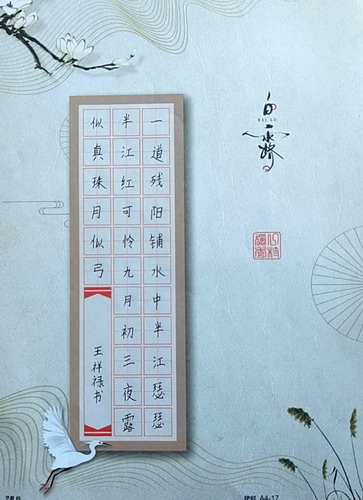 白露
BAI LU
一道残阳铺水中半江瑟瑟
半江红可怜九月初三夜露
似真珠月似弓
王祥禄书
A4-17